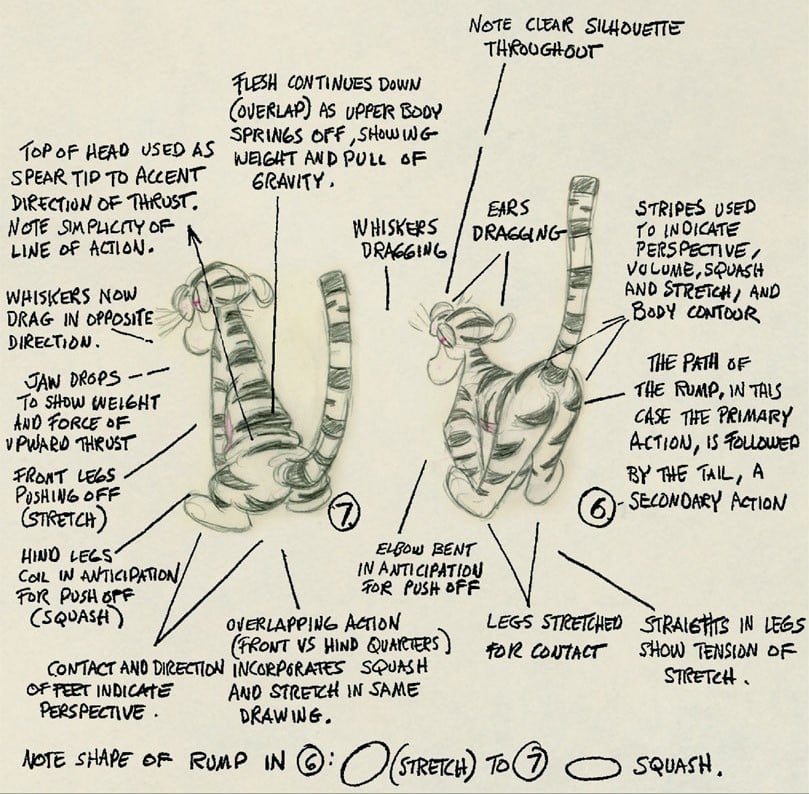 NOTE CLEAR SILHOUETTE
THROUGHOUT
FLESH CONTINUES DOWN
(OVERLAP) AS UPPER BODY
SPRINGS OFF, SHOWING
WEIGHT AND PULL OF
GRAVITY.
TOP OF HEAD USED AS
SPEAR TIP TO ACCENT
DIRECTION OF THRUST.
NOTE SIMPLICITY OF
LINE OF ACTION.
WHISKERS
DRAGGING
EARS
DRAGGING
STRIPES USED
TO INDICATE
PERSPECTIVE,
VOLUME, SQUASH
AND STRETCH, AND
BODY CONTOUR
WHISKERS NOW
DRAG IN OPPOSITE
DIRECTION.
JAW DROPS
TO SHOW WEIGHT
AND FORCE OF
UPWARD THRUST
THE PATH OF
THE RUMP, IN THIS
CASE THE PRIMARY
ACTION, IS FOLLOWED
BY THE TAIL, A
SECONDARY ACTION
FRONT LEGS
PUSHING OFF
(STRETCH)
7
6
HIND LEGS
COIL IN ANTICIPATION
FOR PUSH OFF
(SQUASH)
ELBOW BENT
IN ANTICIPATION
FOR PUSH OFF
CONTACT AND DIRECTION
OF FEET INDICATE
PERSPECTIVE.
OVERLAPPING ACTION
(FRONT VS HIND QUARTERS)
INCORPORATES SQUASH
AND STRETCH IN SAME
DRAWING.
LEGS STRETCHED
FOR CONTACT
STRAIGHTS IN LEGS
SHOW TENSION OF
STRETCH.
NOTE SHAPE OF RUMP IN 6: (STRETCH) TO 7 SQUASH.